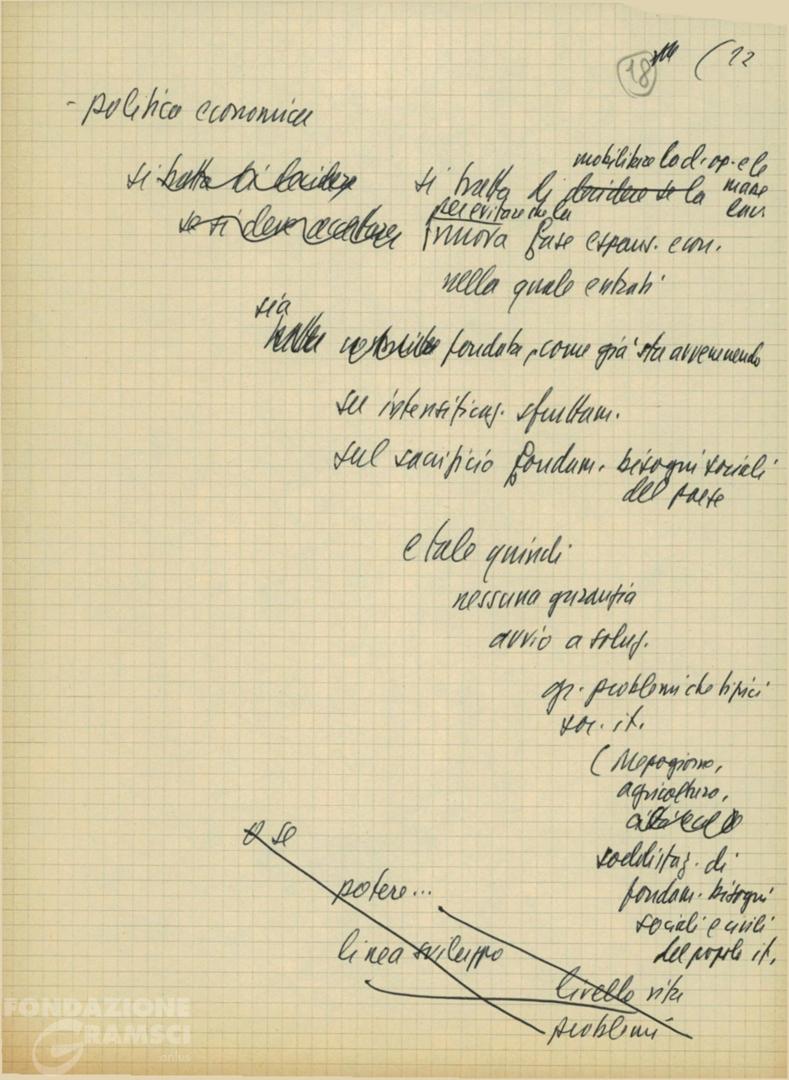 18 (12
- politica economica
si tratta di decidere
se si deve accettare
mobilitare la cl. op. e le
si tratta di decidere se la masse
lav.
per evitare che la
nuova fase espans. econ.
nella quale entrati
sia
fondata, come già sta avvenendo
su intensificaz. sfruttam.
sul sacrificio fondam. bisogni sociali
del paese
e tale quindi
nessuna garanzia
avvio a soluz.
gr. problemi che tipici
soc. it.
(Mezzogiorno,
agricoltura,
soddisfaz. di
fondam. bisogni
sociali e civili
del popolo it.
o se
potere...
linea sviluppo
livello vita
problemi
FONDAZIONE
GRAMSCI
onlus